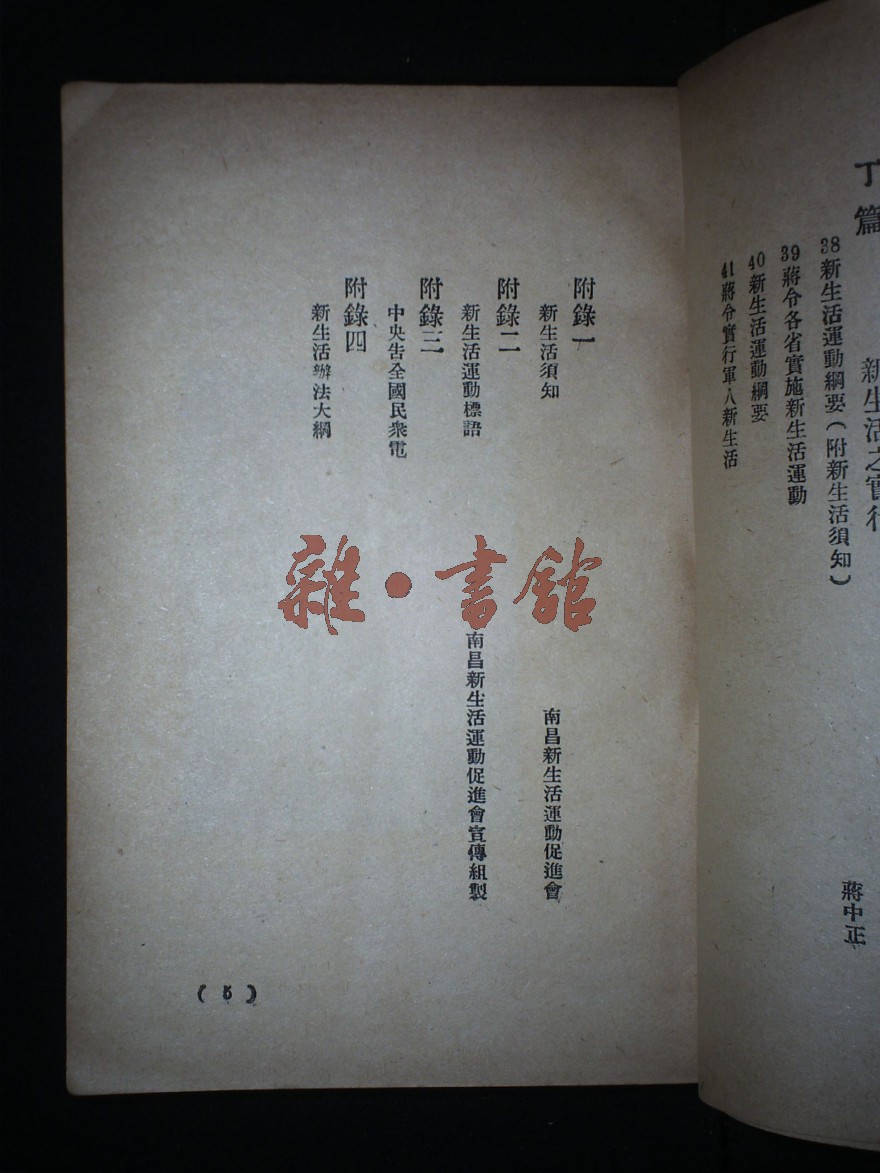 丁篇
新生活之實行
38新生活運動綱要（附新生活須知）
蔣中正
39蔣令各省實施新生活運動
40新生活運動綱要
41蔣令實行軍人新生活
附錄一
新生活須知
南昌新生活運動促進會
附錄二
新生活運動標語
南昌新生活運動促進會宣傳組製
附錄三
中央告全國民衆電
附錄四
新生活辦法大綱
（5）
雜•書館